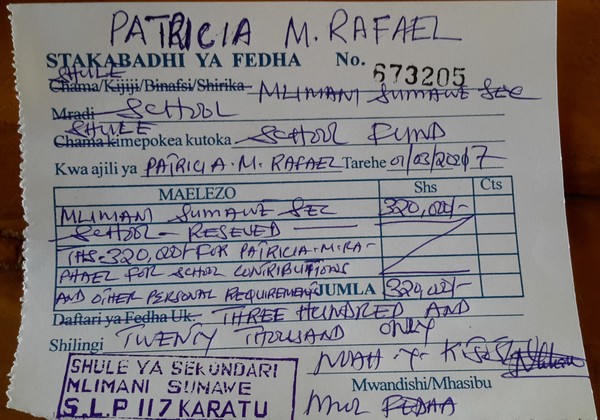 PATRICIA M. RAFAEL
STAKABADHI YA FEDHA No. 673205
SHULE
Chama/Kijiji/Binafsi/Shirika MLIMANI SUMAWE SEC
Mradi SCHOOL
SHULE
Chama kimepokea kutoka SCHOOL FUND
Kwa ajili ya PATRICIA.M.RAFAEL Tarehe
MAELEZO Shs Cts
MLIMANI SUMAWE SEC 320,000/-
SCHOOL - RESEVED
THS.320,000/- FOR PATRICIA.M.RA-
PHAEL FOR SCHOOL CONTRIBUTIONS
AND OTHER PERSONAL REQUIREMENT JUMLA 320,000/-
Daftari ya Fedha Uk. THREE HUNDRED AND
Shilingi TWENTY THOUSAND ONLY
SHULE YA SEKUNDARI
MLIMANI SUMAWE
S.L.P 117 KARATU
NOAH
Mwandishi/Mhasibu